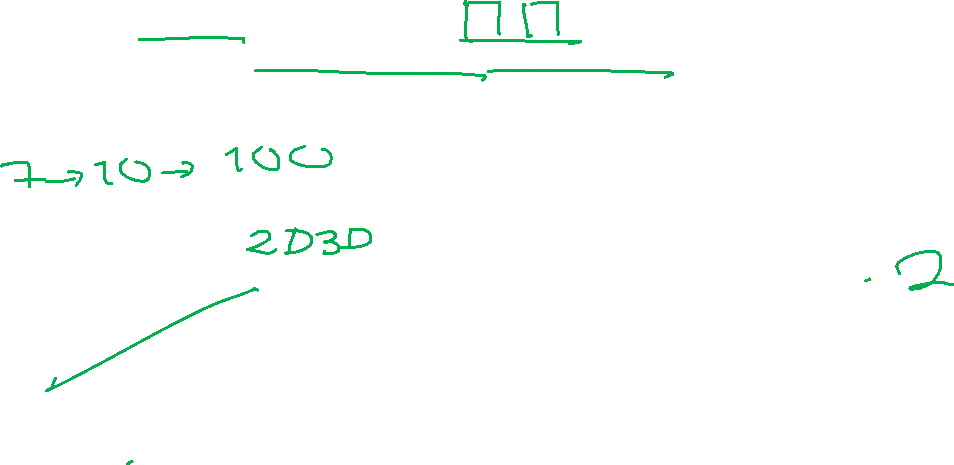 7→10→100
2D3D
.2